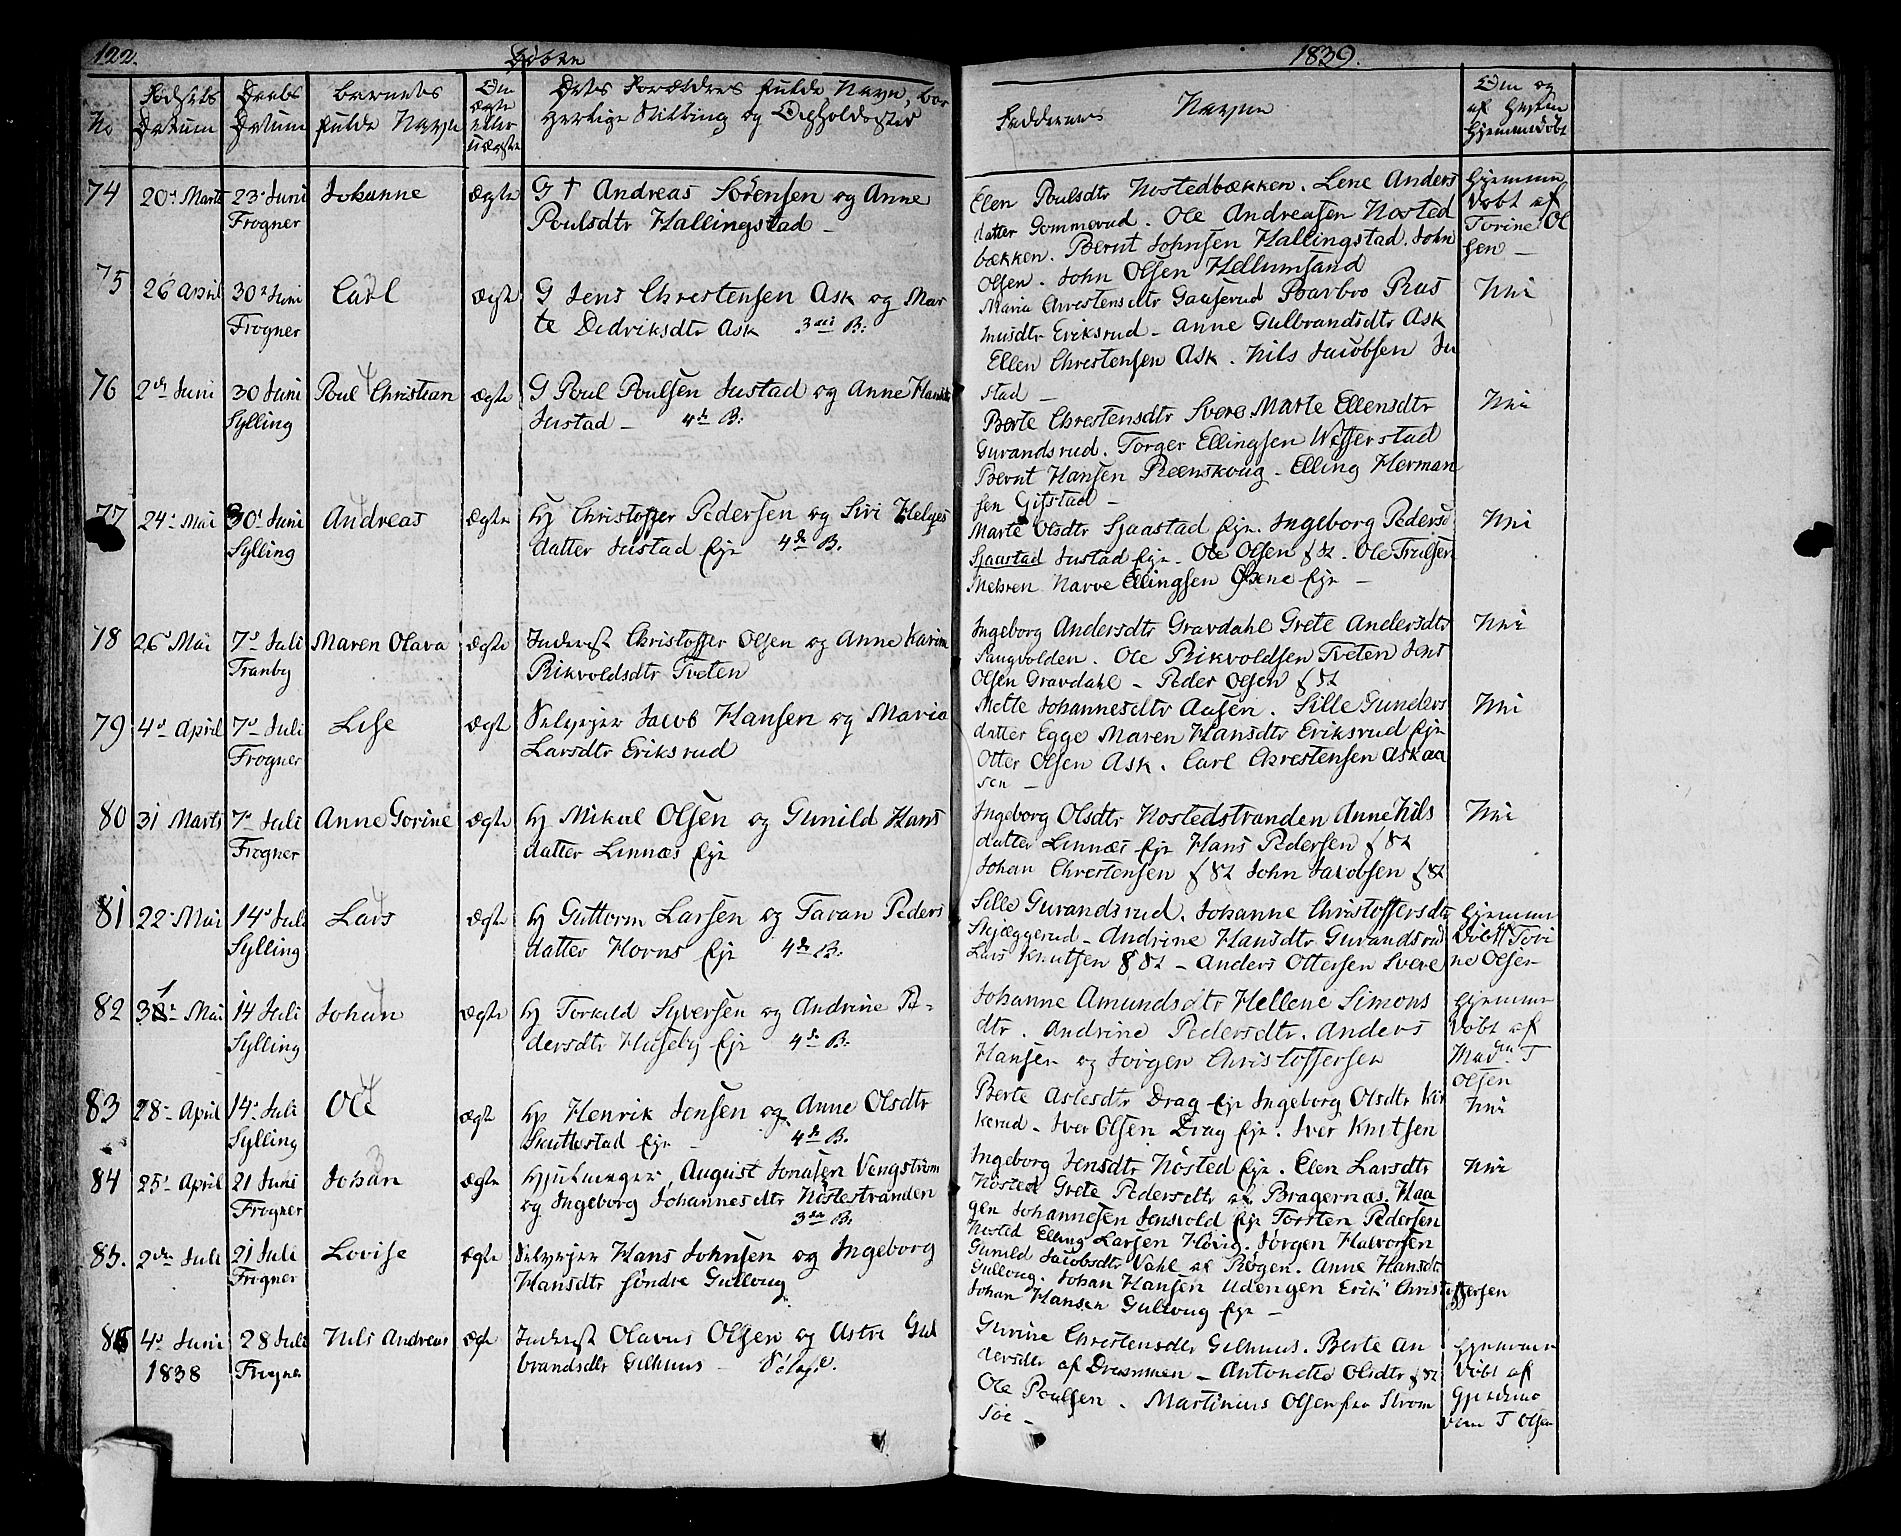 122.
Døbte
1839.
No
Fødsels Datum
Daabs Datum
Barnets fulde Navn
Om ægte eller uægte
Dets Forældres fulde Navn, bor
gerlige Stilling og Opholdssted
Faddernes Navne
Om og af hvem Hjemmedøbt
74 20de Marts 23de Juni Johanne ægte G † Andreas Sörensen og Anne
Frogner Poulsdtr Hallingstad –
Elen Poulsdtr Nostedbækken. Lene Anders
datter Gommerud. Ole Andreasen Nosted
bækken. Bernt Johnsen Hallingstad. John
Olsen. John Olsen Hellumsand
Hjemme
døbt af
Torine Ol
sen –
75 26 April 30 Juni Carl ægte G Jens Christensen Ask og Mar
Frogner te Didriksdtr Ask 3die B:
Maria Christensdtr Gauserud Barbro Ras
musdtr Eriksrud – Anne Gulbrandsdtr Ask
Ellen Christensen Ask. Nils Jacobsen Ju
stad –
Nei
76 2den Juni 30 Juni Poul Christian ægte G Poul Poulsen Justad og Anne Hansdtr
Sylling Justad – 4de B:
Berte Christensdtr Svere Marte Ellensdtr
Gurandsrud. Torger Ellingsen Wefferstad
Bernt Hansen Reenskoug – Elling Herman
sen Gifstad –
Nei
77 24 Mai 30 Juni Andreas ægte Hj Christoffer Pedersen og Siri Helges
Sylling datter Justad Eje 4de B.
Marte Olsdtr Sjaastad Eje. Ingeborg Peders
Sjaastad Justad Eje – Ole Olsen f 82. Ole Truls en
Mehren Narve Ellingsen Økene Eje –
Nei
78 26 Mai 7de Juli Maren Olava ægte Inderst Christoffer Olsen og Anne Karine
Tranby Rikvoldsdtr Tveten
Ingeborg Andersdtr Gravdahl Grete Andersdtr
Paugvolden. Ole Rikvoldsen Tveten Jens
Olsen Gravdahl – Peder Olsen f 82
Nei
79 4de April 7de Juli Lise ægte Selvejer Jacob Hansen og Maria
Frogner Larsdtr Eriksrud
Mette Johannesdtr Aasen. Sille Gunders
datter Egge Maren Hansdtr Eriksrud Eje
Otter Olsen Ask. Carl Christensen Askaa
sen –
Nei
80 31 Marts 7de Juli Anne Gorine ægte Hj Mikal Olsen og Gunild Hans
Frogner datter Linnæs Eje
Ingeborg Olsdtr Nostedstranden Anne Nils
datter Linnæs Eje Hans Pedersen f 82
Johan Christensen f 82 John Jacobsen f 82
Nei
81 22 Mai 14de Juli Lars ægte Hj Guttorm Larsen og Taran Peders
Sylling datter Horns Eje 4de B.
Sille Gurandsrud. Johanne Christoffersdtr
Skjæggerud – Andrine Hansdtr Gurandsrud
Lars Knutsen 8 82 – Anders Ottersen Svere
Hjemme
døbt af Tori
ne Olsen
82 31 Mai 14 Juli Johan ægte Hj Torkild Syversen og Andrine Pe-
Sylling dersdtr Huseby Eje 4de B.
Johanne Amundsdtr Hellene Simons
dtr. Andrine Pedersdtr. Anders
Hansen og Jörgen Christoffersen
Hjemme
døbt af
Madm T
Olsen
83 28 April 14 Juli Ole ægte Hj Henrik Jensen og Anne Olsdtr
Sylling Skuttestad Eje 4de B.
Berte Aslesdtr Drag Eje Ingeborg Olsdtr Kir
kerud – Iver Olsen Drag Eje. Iver Knutsen
Nei
84 25 April 21 Juni Johan ægte August Jonasen Vengstrøm
Frogner og Ingeborg Johannesdtr Nöstestranden
3die B.
Ingeborg Jensdtr Nösted Eje. Elen Larsdtr
Nösted Grete Pedersdtr af Bragernæs. Haa
gen Johannesen Jensvold Eje Torsten Pedersen
Nosted Elling Larsen Hövig. Jörgen Halvorsen
Nei
85. 2den Juli 21 Juli Lovise ægte Selvejer Hans Johnsen og Ingeborg
Frogner Hansdtr söndre Gulloug
Gunild Jacobsdtr Vahl af Røgen. Anne Hansdtr
Gulloug. Johan Hansen Udengen Erik Christoffersen
Johan Hansen Gulloug Eje –
86 4de Juni 28 Juli Nils Andreas ægte Inderst Olavus Olsen og Astri Gul
1838 Frogner brandsdtr Gilhuus –
Gurine Christensdtr Gilhuus. Berte An
dersdtr af Drammen – Antonette Olsdtr f 82
Ole Poulsen. Martinius Olsen fra Strøm
söe –
Hjemme
døbt af
Gjordmo
deren T Olsen